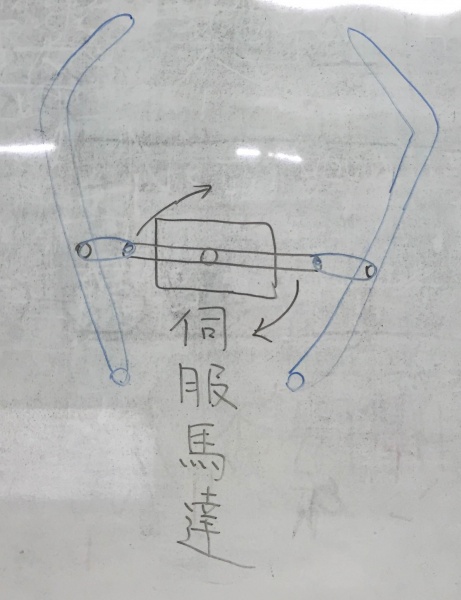 伺服馬達